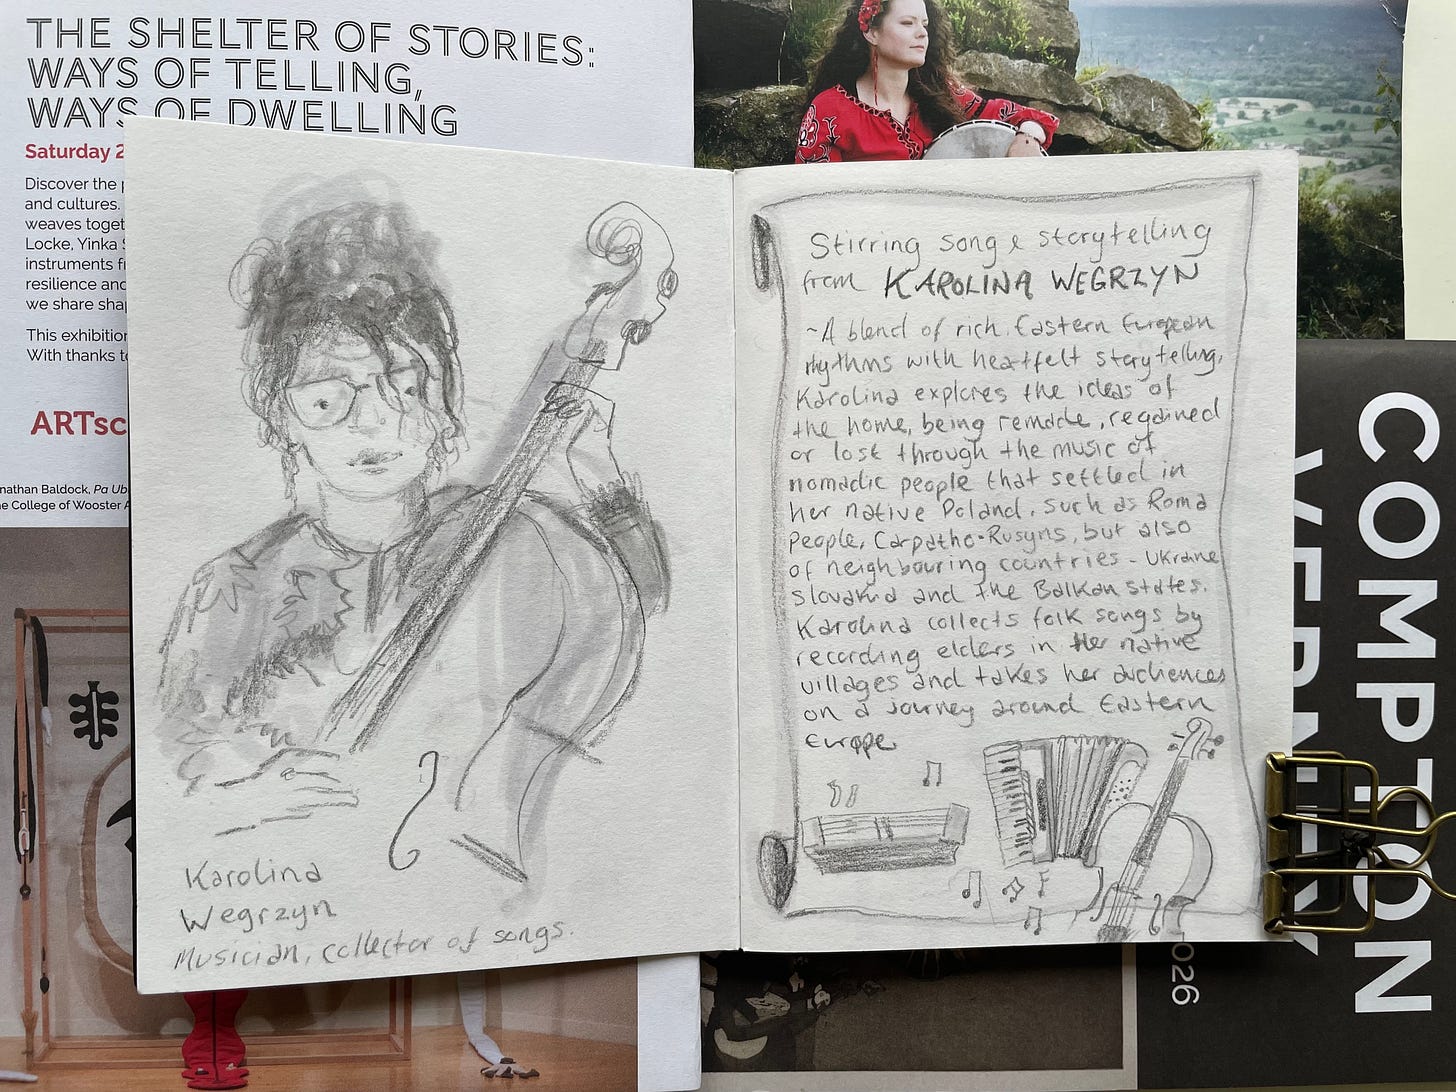 THE SHELTER OF STORIES:
WAYS OF TELLING,
WAYS OF DWELLING
Saturday 2
Discover the
and cultures.
weaves
Locke, Yinka
instruments
resilience and
we share
This
With thanks
ARTsc
Jonathan Baldock, Pa Ub
The College of Wooster
Karolina
Wegrzyn
Musician, collector of songs.
Stirring song & storytelling
from KAROLINA WEGRZYN
~A blend of rich Eastern European
rhythms with heartfelt storytelling,
Karolina explores the ideas of
the home, being remade, regained
or lost through the music of
nomadic people that settled in
her native Poland, such as Roma
People, Carpatho-Rusyns, but also
of neighbouring countries - Ukraine
Slovakia and the Balkan States.
Karolina collects folk songs by
recording elders in her native
villages and takes her audiences
on a journey around Eastern
Europe
COMPTON
VERNEY
2026